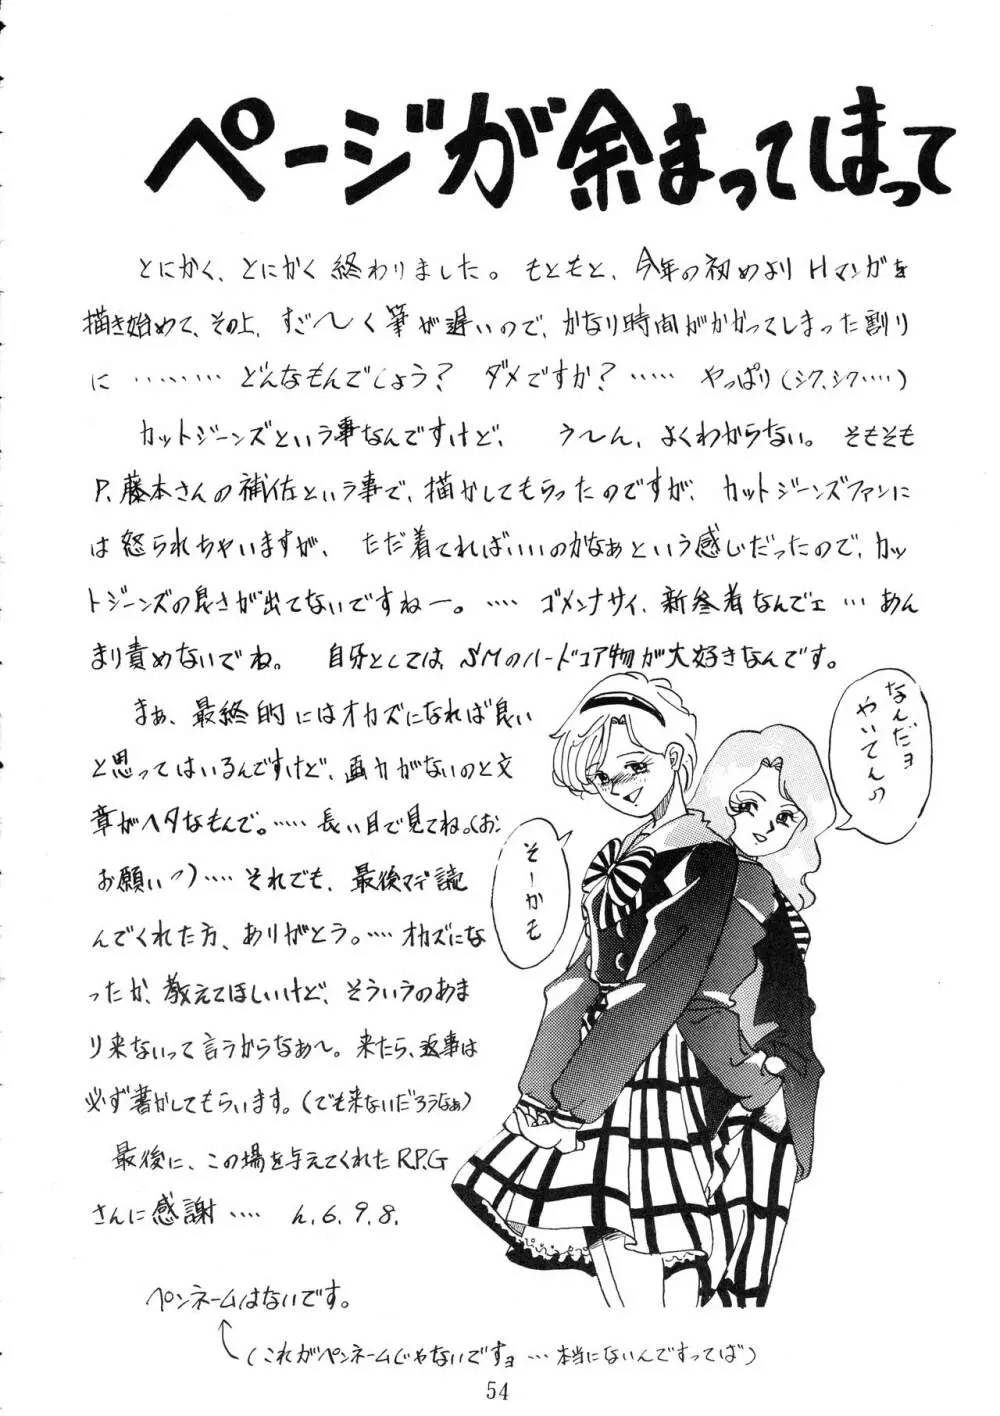 ページが余まってしまって
とにかく、とにかく終わりました。もともと、今年の初めよりHマンガを
描き始めて、その上、すご〜く筆が遅いので、かなり時間がかかってしまった割り
に‥‥‥‥どんなもんでしょう？ ダメですか？‥‥‥ やっぱり(シク、シク‥‥)
カットジーンズという事なんですけど、 う〜ん、よくわからない。そもそも
P、藤本さんの補佐という事で、描かしてもらったのですが、カットジーンズファンに
は怒られちゃいますが、 ただ着てればいいのかなぁという感じだったので、カッ
トジーンズの良さが出てないですねー。‥‥ ゴメンナサイ、新参者なんでェ…あん
まり責めないでね。 自分としては、SMのハードコア物が大好きなんです。
まぁ、最終的にはオカズになれば良い
と思ってはいるんですけど、画力がないのと文
章がヘタなもんで。‥‥‥長い目で見てね。(お、
お願いっ)‥‥それでも、最後マデ読
んでくれた方、ありがとう。‥‥オカズにな
ったか、教えてほしいけど、そういうのあま
り来ないって言うからなぁ〜。来たら、返事は
必ず書かしてもらいます。(でも来ないだろうなぁ)
最後に、この場を与えてくれたR.P.G
さんに感謝‥‥ h.6.9.8.
なんだョ
やいてんっ
そーかも
ペンネームはないです。
(これがペンネームじゃないですョ…本当にないんですってば)
54